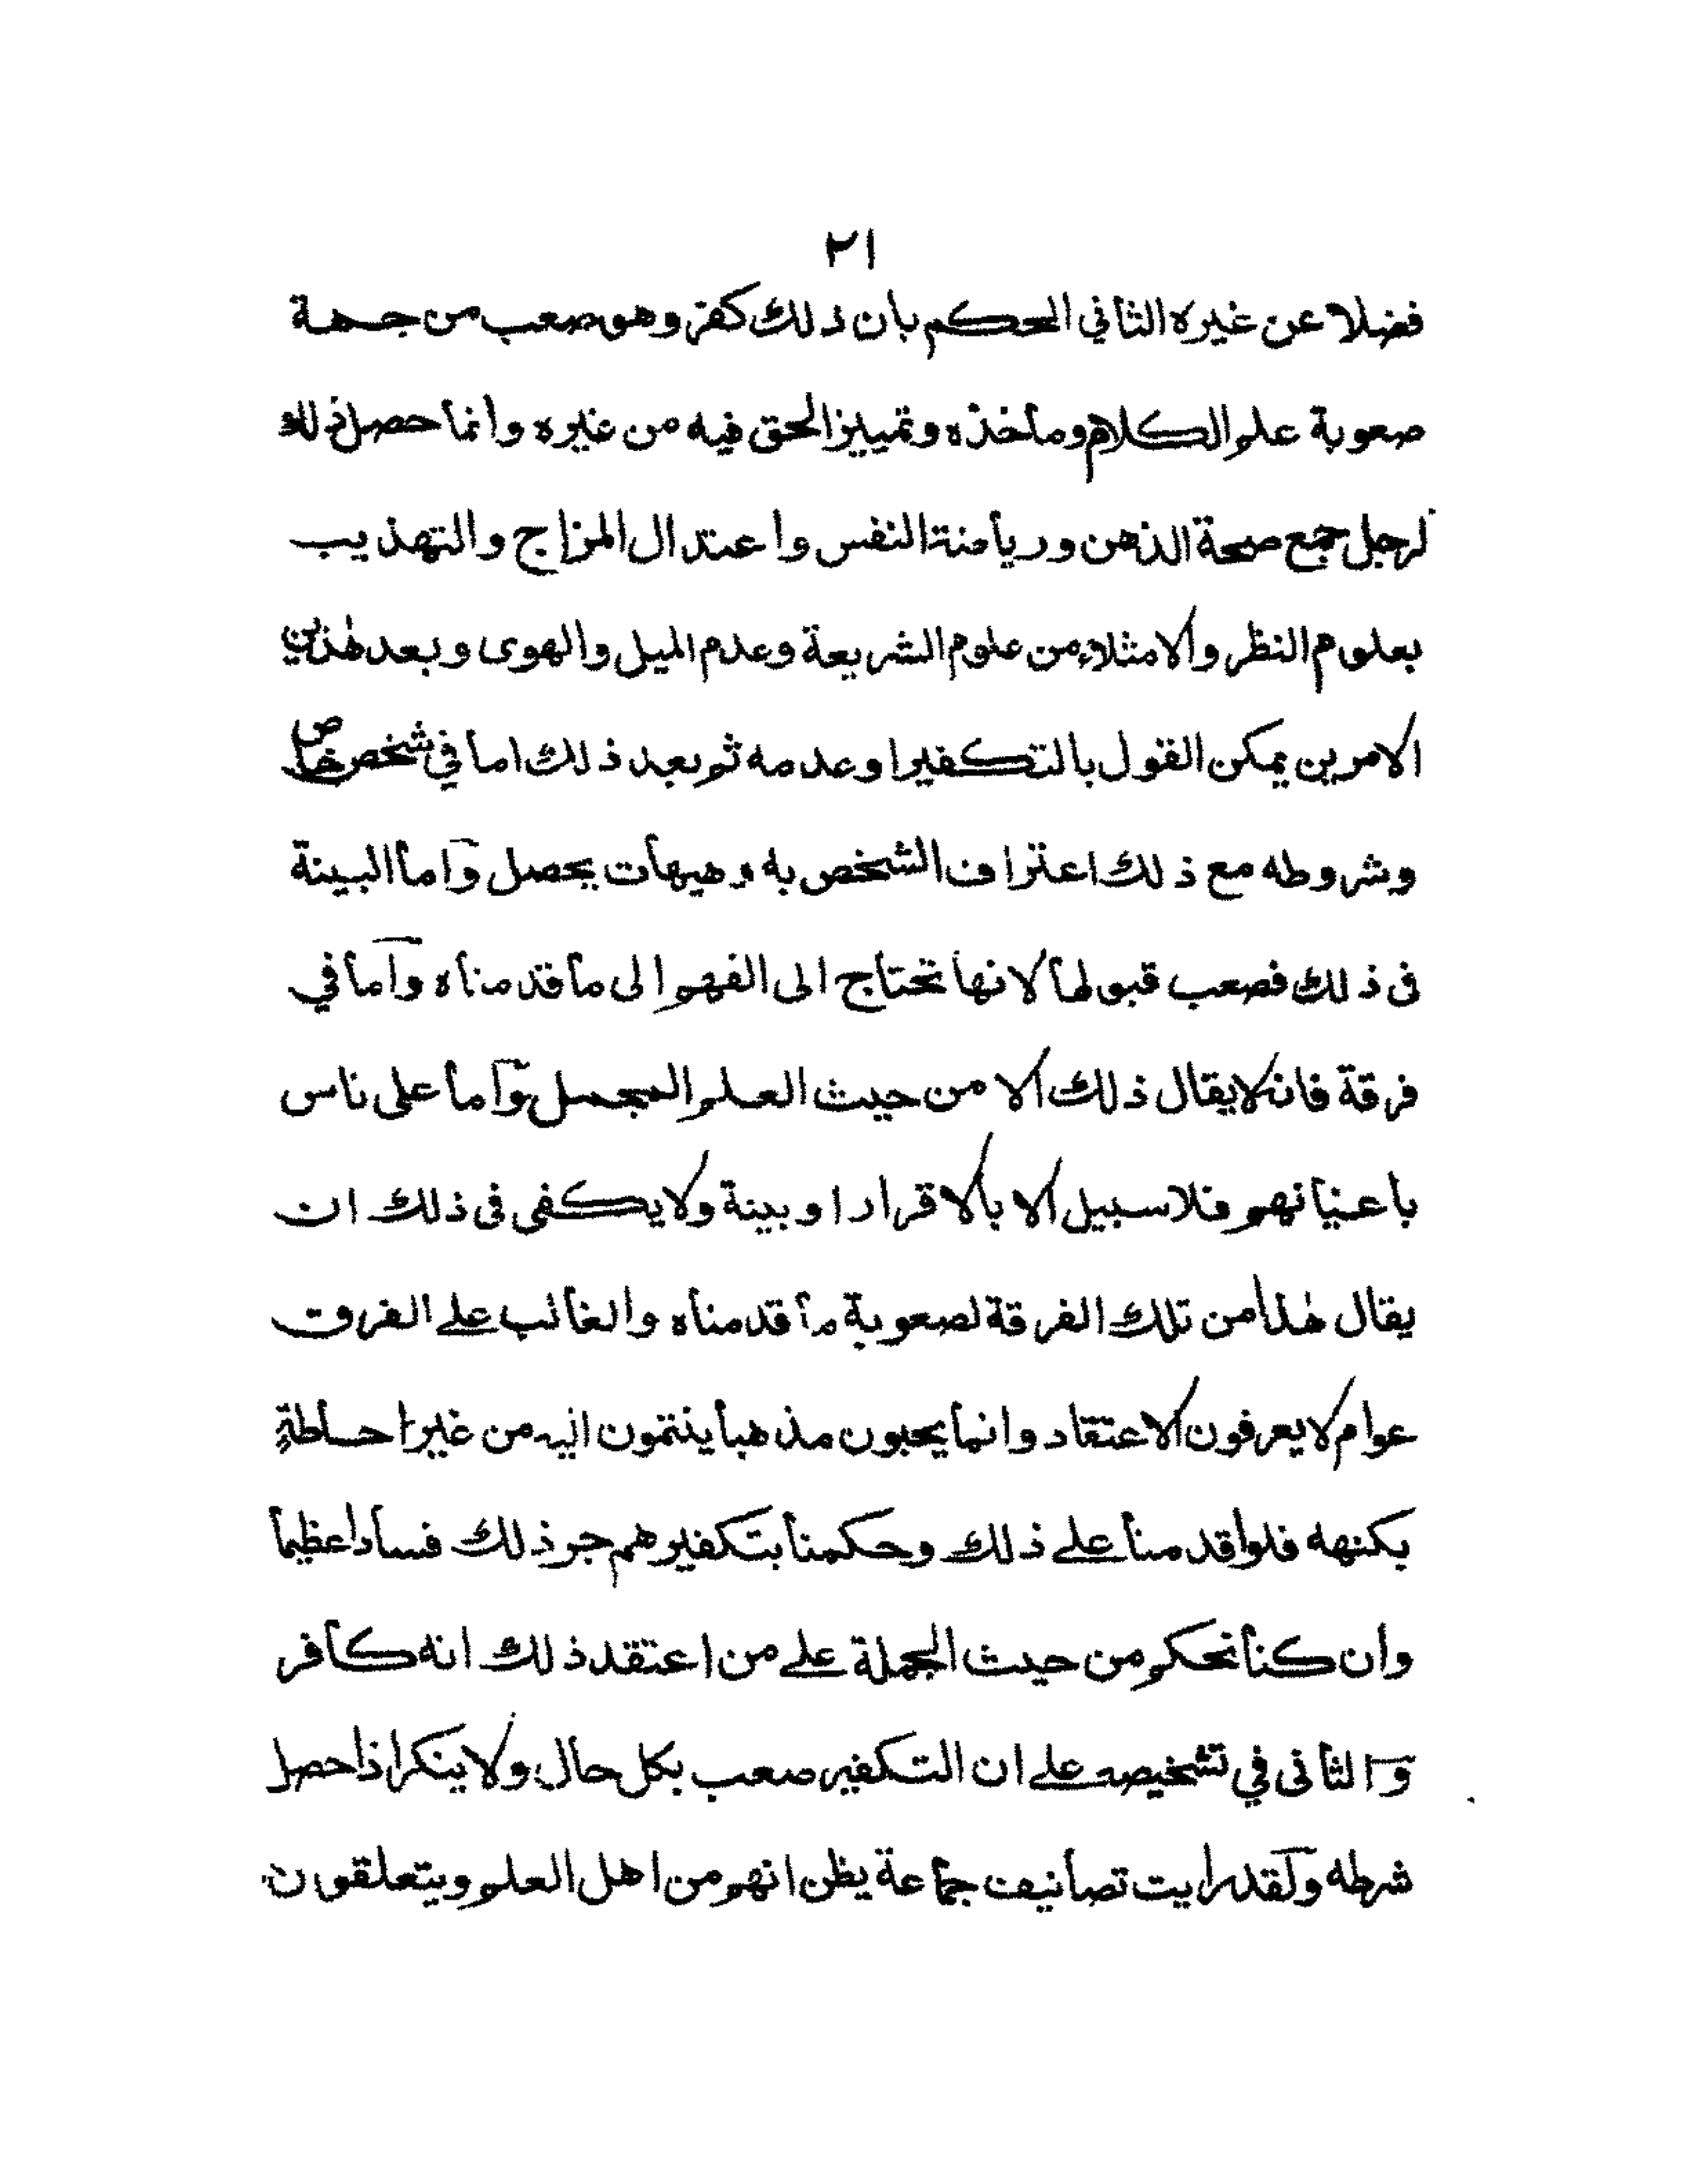 ٢١
فضلا عن غيره الثاني الحكم بان ذلك كفر وهو صعب من جهة
صعوبة علم الكلام ومأخذه وتمييز الحق فيه من غيره وانما حصل ذلك
لرجل جمع صحة الذهن ورياضة النفس واعتدال المزاج والتهذيب
بعلوم النظر والامتلاء من علوم الشريعة وعدم الميل والهوى وبعد هذين
الامرين يمكن القول بالتكفير اوعدمه ثم بعد ذلك اما في شخص خاص
وشروطه مع ذلك اعتراف الشخص به وهيهات يحصل واما البينة
فى ذلك فصعب قبولها لانها تحتاج الى الفهم الى ما قدمناه واما في
فرقة فانه لايقال ذلك الا من حيث العلم المجمل واما على ناس
باعيانهم فلا سبيل الا بالاقرار او بينة ولايكفى فى ذلك ان
يقال هذا من تلك الفرقة لصعوبة ما قدمناه والغالب على الفرق
عوام لايعرفون الاعتقاد وانما يحبون مذهبا ينتمون اليه من غير احاطة
بكنهه فلو اقدمنا على ذلك وحكمنا بتكفيرهم جر ذلك فسادا عظيما
وان كنا نحكم من حيث الجملة على من اعتقد ذلك انه كافر
والثانى في تشخيصه على ان التكفير صعب بكل حال ولا ينكر اذا حصل
شرطه ولقد رايت تصانيف جماعة يظن انهم من اهل العلم ويتعلقون